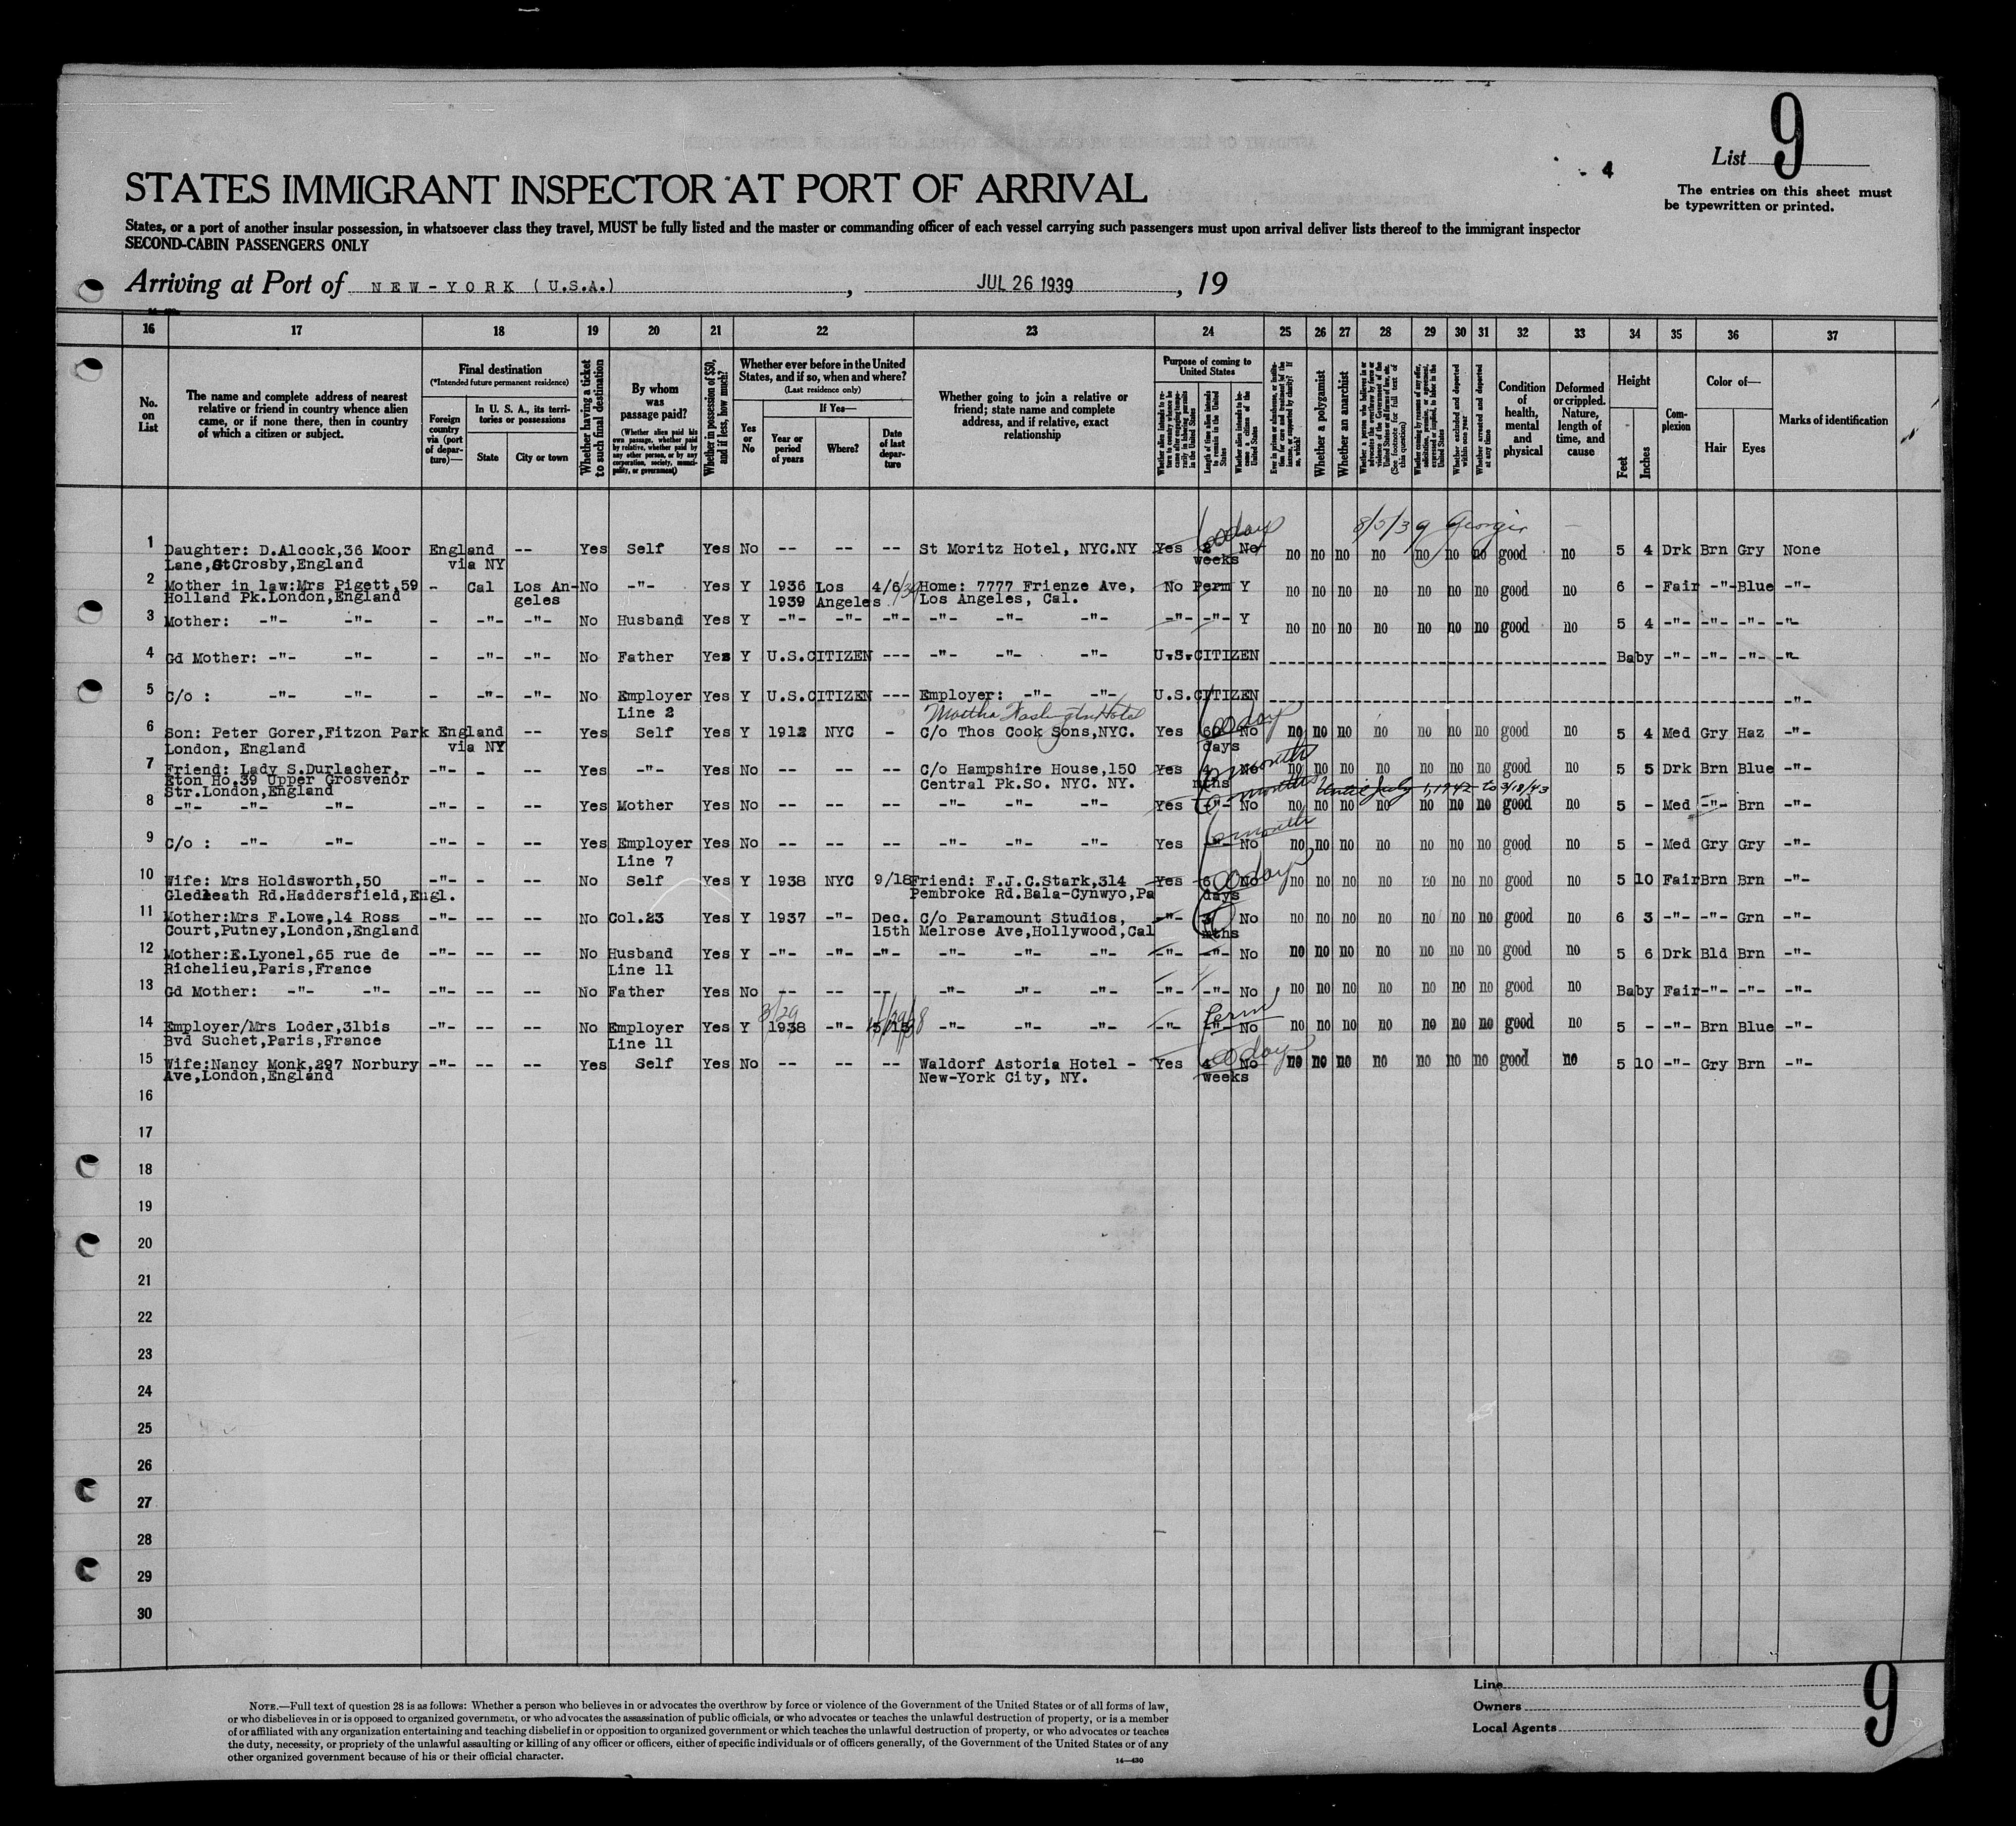 List 9
- 4
The entries on this sheet must
be typewritten or printed.
STATES IMMIGRANT INSPECTOR AT PORT OF ARRIVAL
States, or a port of another insular possession, in whatsoever class they travel, MUST be fully listed and the master or commanding officer of each vessel carrying such passengers must upon arrival deliver lists thereof to the immigrant inspector
SECOND-CABIN PASSENGERS ONLY
Arriving at Port of NEW-YORK (U.S.A.), JUL 26 1939, 19
16 17 18 19 20 21 22 23 24 25 26 27 28 29 30 31 32 33 34 35 36 37
No. on List
The name and complete address of nearest relative or friend in country whence alien came, or if none there, then in country of which a citizen or subject.
Final destination
(*Intended future permanent residence)
Foreign country via (port of departure)—
In U. S. A., its territories or possessions
State
City or town
Whether having a ticket to such final destination
By whom was passage paid?
(Whether alien paid his own passage, whether paid by relative, whether paid by any other person, or by any corporation, society, municipality, or government)
Whether in possession of $50, and if less, how much?
Whether ever before in the United States, and if so, when and where?
(Last residence only)
Yes or No
If Yes—
Year or period of years
Where?
Date of last departure
Whether going to join a relative or friend; state name and complete address, and if relative, exact relationship
Purpose of coming to United States
Length of time alien intends to remain in the United States
Whether alien intends to become a citizen of the United States
Whether a polygamist
Whether an anarchist
Whether excluded and deported within one year
Whether arrested and deported at any time
Condition of health, mental and physical
Deformed or crippled. Nature, length of time, and cause
Height
Feet
Inches
Complexion
Color of—
Hair
Eyes
Marks of identification
8/5/39 Georgic
60 days
1 Daughter: D.Alcock,36 Moor England -- Yes Self Yes No -- -- -- St Moritz Hotel, NYC.NY Yes 2 No no no no no no no no good no 5 4 Drk Brn Gry None
Lane,StCrosby,England via NY weeks
2 Mother in law:Mrs Pigett,59 - Cal Los An- No -"- Yes Y 1936 Los 4/6/39 Home: 7777 Frienze Ave, No Perm Y no no no no no no no good no 6 - Fair -"- Blue -"-
Holland Pk.London,England geles 1939 Angeles Los Angeles, Cal.
3 Mother: -"- -"- - -"- -"- No Husband Yes Y -"- -"- -"- -"- -"- -"- -"- -"- Y no no no no no no no good no 5 4 -"- -"- -"- -"-
4 Gd Mother: -"- -"- - -"- -"- No Father Yes Y U.S.CITIZEN --- -"- -"- -"- U.S.CITIZEN Baby -"- -"- -"- -"-
5 C/o : -"- -"- - -"- -"- No Employer Yes Y U.S.CITIZEN --- Employer: -"- -"- U.S.CITIZEN -"-
Line 2 Martha Washington Hotel 60 days
6 Son: Peter Gorer,Fitzon Park England -- Yes Self Yes Y 1912 NYC - C/o Thos Cook Sons,NYC. Yes 60 No no no no no no no no good no 5 4 Med Gry Haz -"-
London, England via NY days
6 months
7 Friend: Lady S.Durlacher, -"- - -- Yes -"- Yes No -- -- -- C/o Hampshire House,150 Yes No no no no no no no no good no 5 5 Drk Brn Blue -"-
Eton Ho.39 Upper Grosvenor Central Pk.So. NYC. NY. mths
Str.London,England 6 months Until July 1, 1942 to 3/18/43
8 -"- -"- -"- -"- - -- Yes Mother Yes No -- -- -- -"- -"- -"- Yes -"- No no no no no no no no good no 5 - Med -"- Brn -"-
6 months
9 C/o : -"- -"- -"- - -- Yes Employer Yes No -- -- -- -"- -"- -"- Yes -"- No no no no no no no no good no 5 - Med Gry Gry -"-
Line 7 60 days
10 Wife: Mrs Holdsworth,50 -"- - -- No Self Yes Y 1938 NYC 9/18 Friend: F.J.C.Stark,314 Yes 6 No no no no no no no no good no 5 10 Fair Brn Brn -"-
Gledleath Rd.Haddersfield,Engl. Pembroke Rd.Bala-Cynwyo,Pa days
11 Mother:Mrs F.Lowe,14 Ross -"- -- -- No Col.23 Yes Y 1937 -"- Dec. C/o Paramount Studios, -"- 3 No no no no no no no no good no 6 3 -"- -"- Grn -"-
Court,Putney,London,England 15th Melrose Ave,Hollywood,Cal mths
12 Mother:E.Lyonel,65 rue de -"- -- -- No Husband Yes Y -"- -"- -"- -"- -"- -"- -"- -"- No no no no no no no no good no 5 6 Drk Bld Brn -"-
Richelieu,Paris,France Line 11
13 Gd Mother: -"- -"- -"- -- -- No Father Yes No -- -- -- -"- -"- -"- -"- -"- No no no no no no no no good no Baby Fair -"- -"- -"-
3/29 Perm
14 Employer/Mrs Loder,31bis -"- -- -- No Employer Yes Y 1938 -"- -"- -"- -"- -"- -"- No no no no no no no no good no 5 - -"- Brn Blue -"-
Bvd Suchet,Paris,France Line 11 60 days
15 Wife:Nancy Monk,297 Norbury -"- -- -- Yes Self Yes No -- -- -- Waldorf Astoria Hotel - Yes 4 No no no no no no no no good no 5 10 -"- Gry Brn -"-
Ave,London,England New-York City, NY. weeks
16
17
18
19
20
21
22
23
24
25
26
27
28
29
30
NOTE.—Full text of question 28 is as follows: Whether a person who believes in or advocates the overthrow by force or violence of the Government of the United States or of all forms of law,
or who disbelieves in or is opposed to organized government, or who advocates the assassination of public officials, or who advocates or teaches the unlawful destruction of property, or is a member
of or affiliated with any organization entertaining and teaching disbelief in or opposition to organized government or which teaches the unlawful destruction of property, or who advocates or teaches
the duty, necessity, or propriety of the unlawful assaulting or killing of any officer or officers, either of specific individuals or of officers generally, of the Government of the United States or of any
other organized government because of his or their official character.
14—430
Line
Owners
Local Agents
9